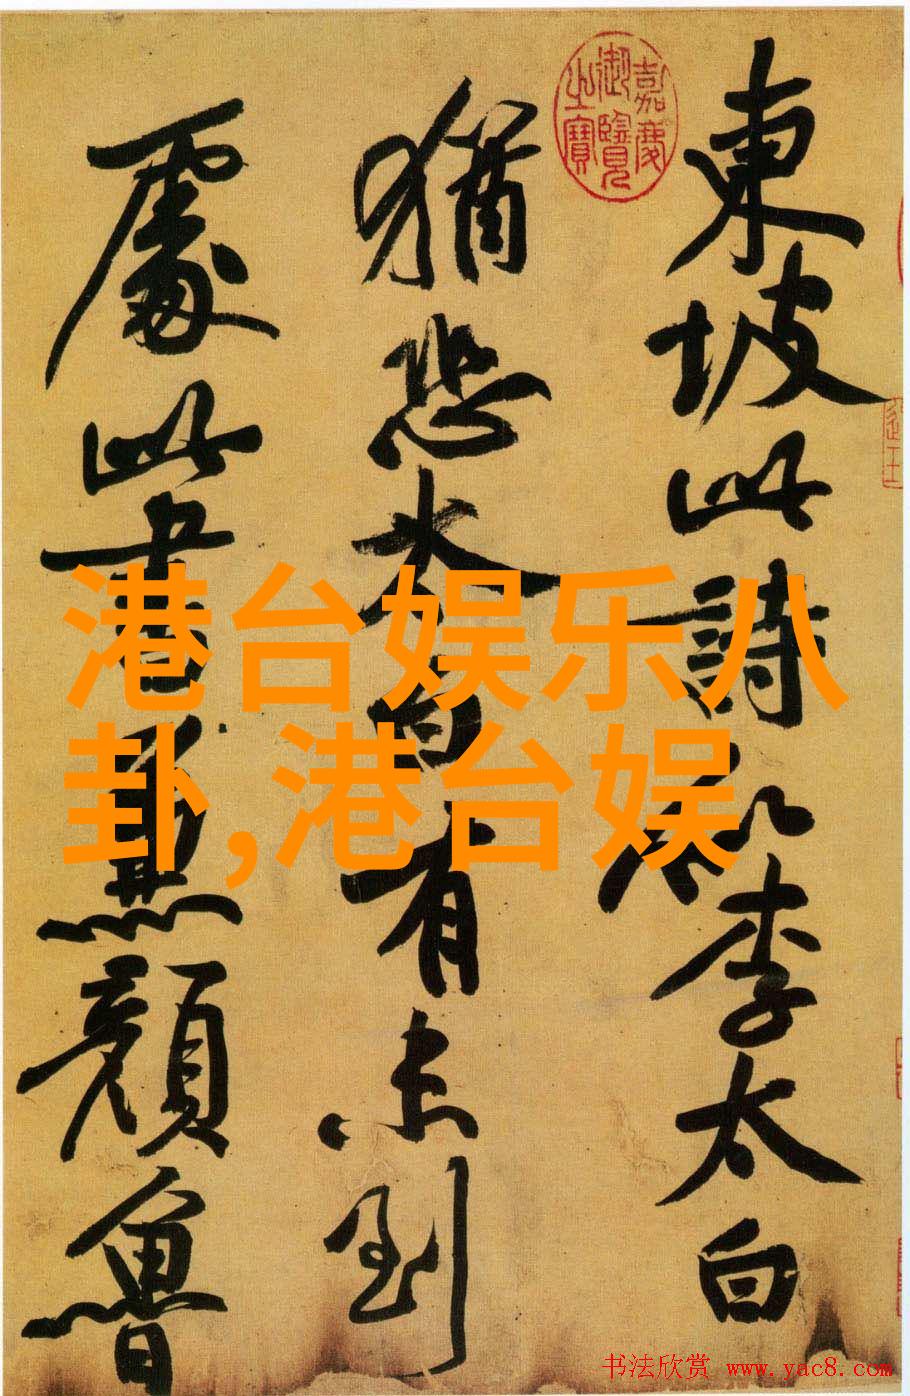 東坡此詩似李太白
猶恐太白有未到
處此書兼顏魯
嘉慶
御覽
之寶
港台娱乐八
卦,港台娱
书法欣赏 www.yac8.com